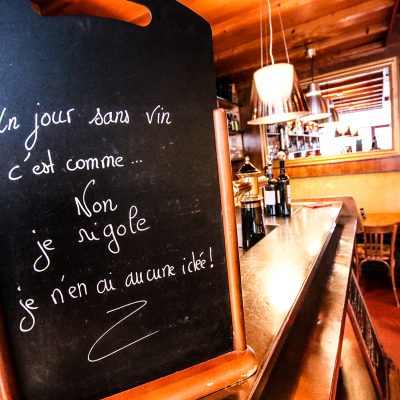 Un jour sans vin
c'est comme...
Non
je rigole
je n'en ai aucune idée!